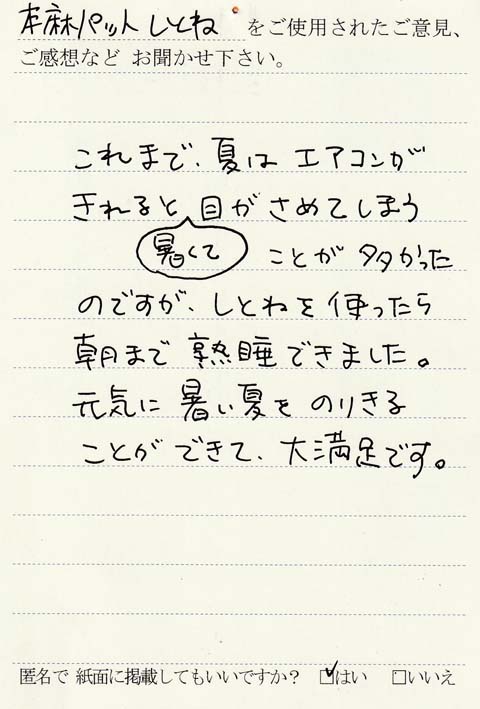 本麻パット しとね をご使用されたご意見、
ご感想など お聞かせ下さい。
これまで、夏は エアコンが
きれると 目が さめてしまう
暑くて ことが 多かった
のですが、しとねを 使ったら
朝まで 熟睡できました。
元気に 暑い夏を のりきる
ことが できて、大満足です。
匿名で 紙面に掲載してもいいですか? ☑はい □いいえ